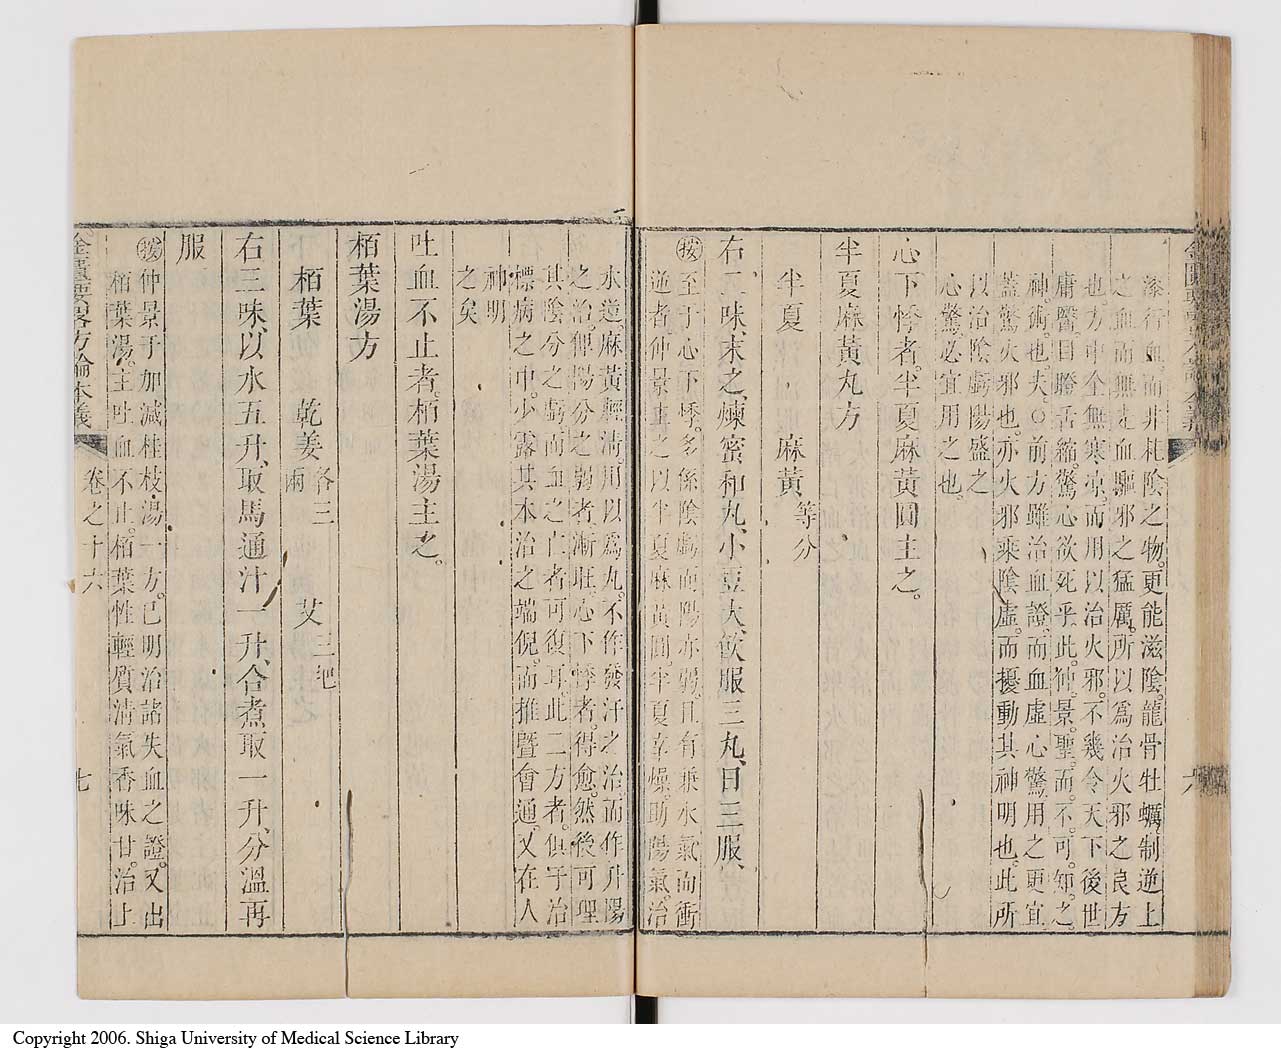 滌行血而非耗陰之物更能滋陰龍骨牡蠣制逆上
之血而無走血驅邪之猛厲所以爲治火邪之良方
也方中全無寒凉而用以治火邪不幾令天下後世
庸醫目瞪舌縮驚心欲死乎此仲景聖而不可知之
神術也夫〇前方雖治血證而血虛心驚用之更宜
蓋驚火邪也亦火邪乘陰虛而擾動其神明也此所
以治陰虧陽盛之
心驚必宜用之也
心下悸者半夏麻黃圓主之
半夏麻黃丸方
半夏 麻黃等分
右二味末之煉蜜和丸小豆大飲服三丸日三服
按至于心下悸多係陰虧而陽亦弱且有乘水氣而衝
逆者仲景主之以半夏麻黃圓半夏辛燥助陽氣治
水逆麻黃輕清用以爲丸不作發汗之治而作升陽
之治俾陽分之弱者漸旺心下悸者得愈然後可理
其陰分之虧而血之亡者可復耳此二方者俱于治
標病之中少露其本治之端倪而推暨會通又在人
神明
之矣
吐血不止者栢葉湯主之
栢葉湯方
栢葉 乾姜各三兩 艾三把
右三味以水五升取馬通汁一升合煮取一升分溫再
服
按仲景于加減桂枝湯一方已明治諸失血之證又出
栢葉湯主吐血不止栢葉性輕質清氣香味甘治上
金匱要畧方論本義 卷之十六 七